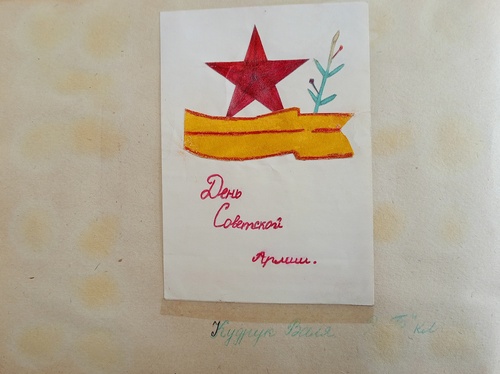 День
Советской
Армии.
Кудрук Валя "Б" кл